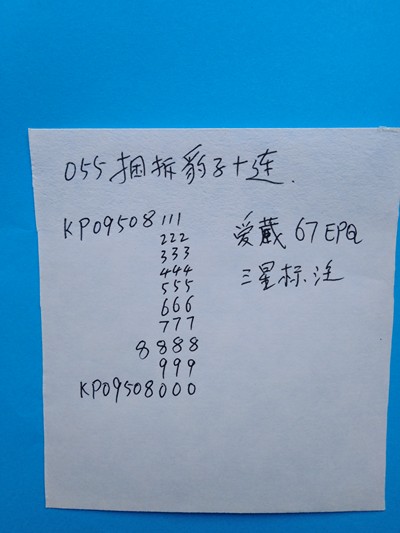 055捆拆豹子十连.
KP09508111
222
333
444
555
666
777
8888
999
KP09508000
爱藏 67EPQ
三星标注